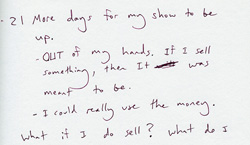 · 21 More days for my show to be
up.
- OUT of my hands. If I sell
something, then It was
meant to be.
- I could really use the money.
What if I do sell? What do I